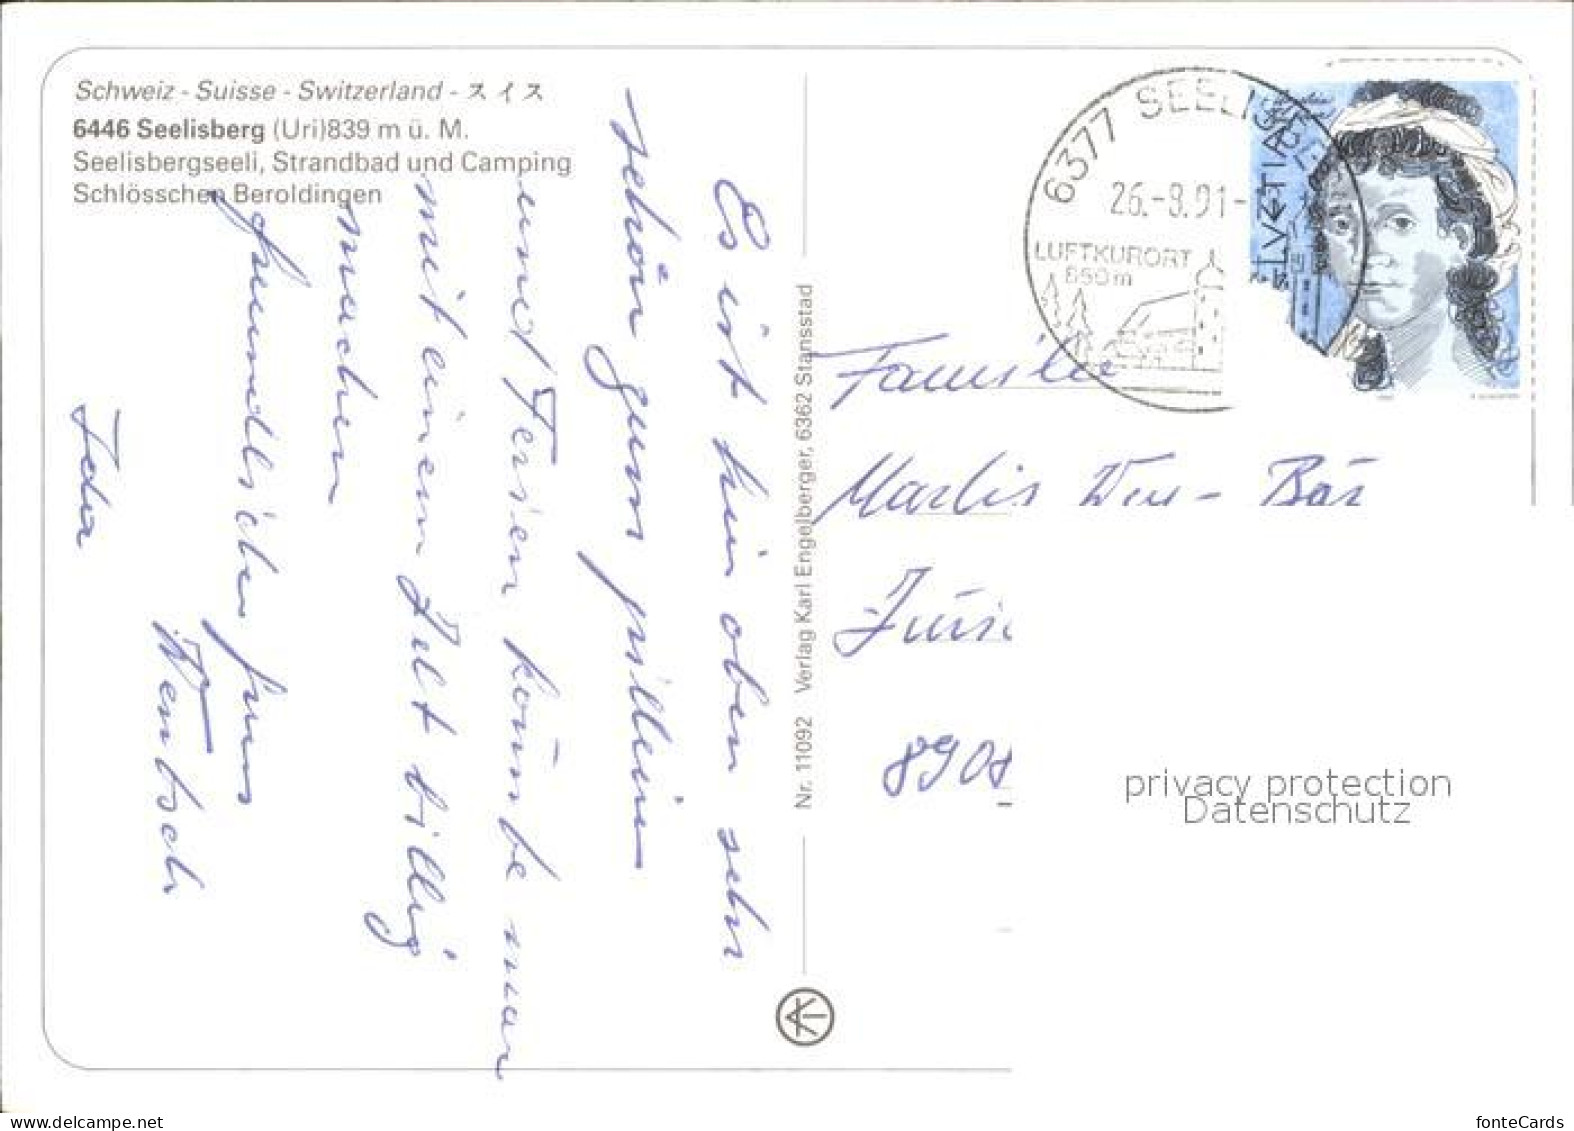 Schweiz - Suisse - Switzerland - スイス
6446 Seelisberg (Uri)839 m ü. M.
Seelisbergseeli, Strandbad und Camping
Schlösschen Beroldingen
Es ist hier oben sehr
schön zum
und Ferien könnte man
mit einem Zelt billig
machen
freundlicher
Ida
Nr. 11092 Verlag Karl Engelberger, 6362 Stansstad
6377 SEELISB
26.-8.91-
LUFTKURORT
850m
HELVETIA
Familie
Marlis
8908
privacy protection
Datenschutz
www.delcampe.net
fonteCards